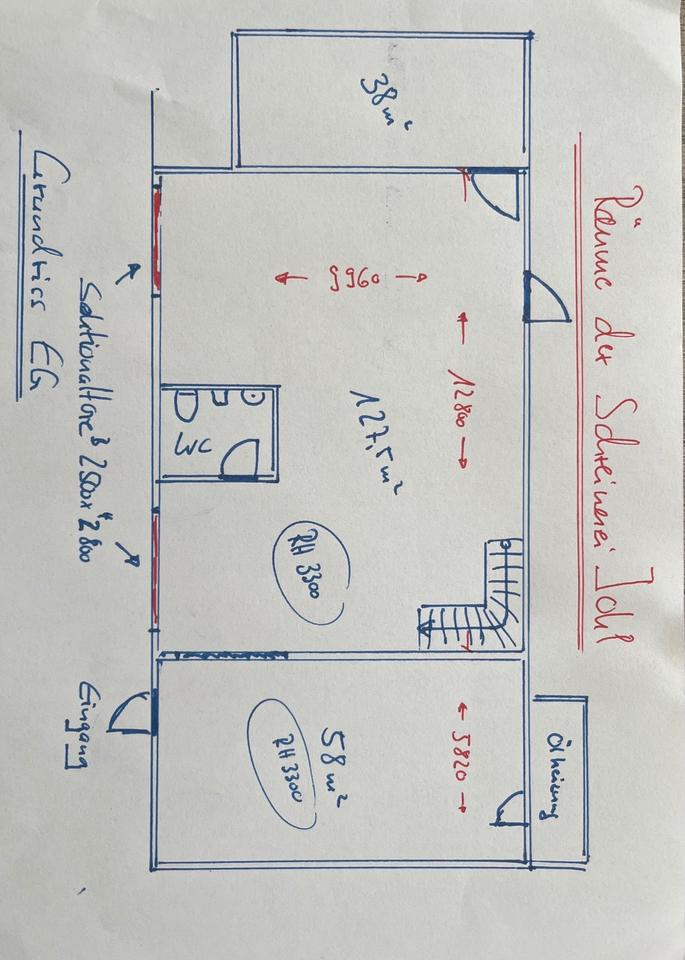 Räume der Schreinerei Johl
38 m²
← 9960 →
← 12800 →
127,5 m²
WC
RH 3300
← 5820 →
58 m²
RH 3300
Ölheizung
Eingang
Sektionaltore B 2500 x H 2800
Grundriss EG